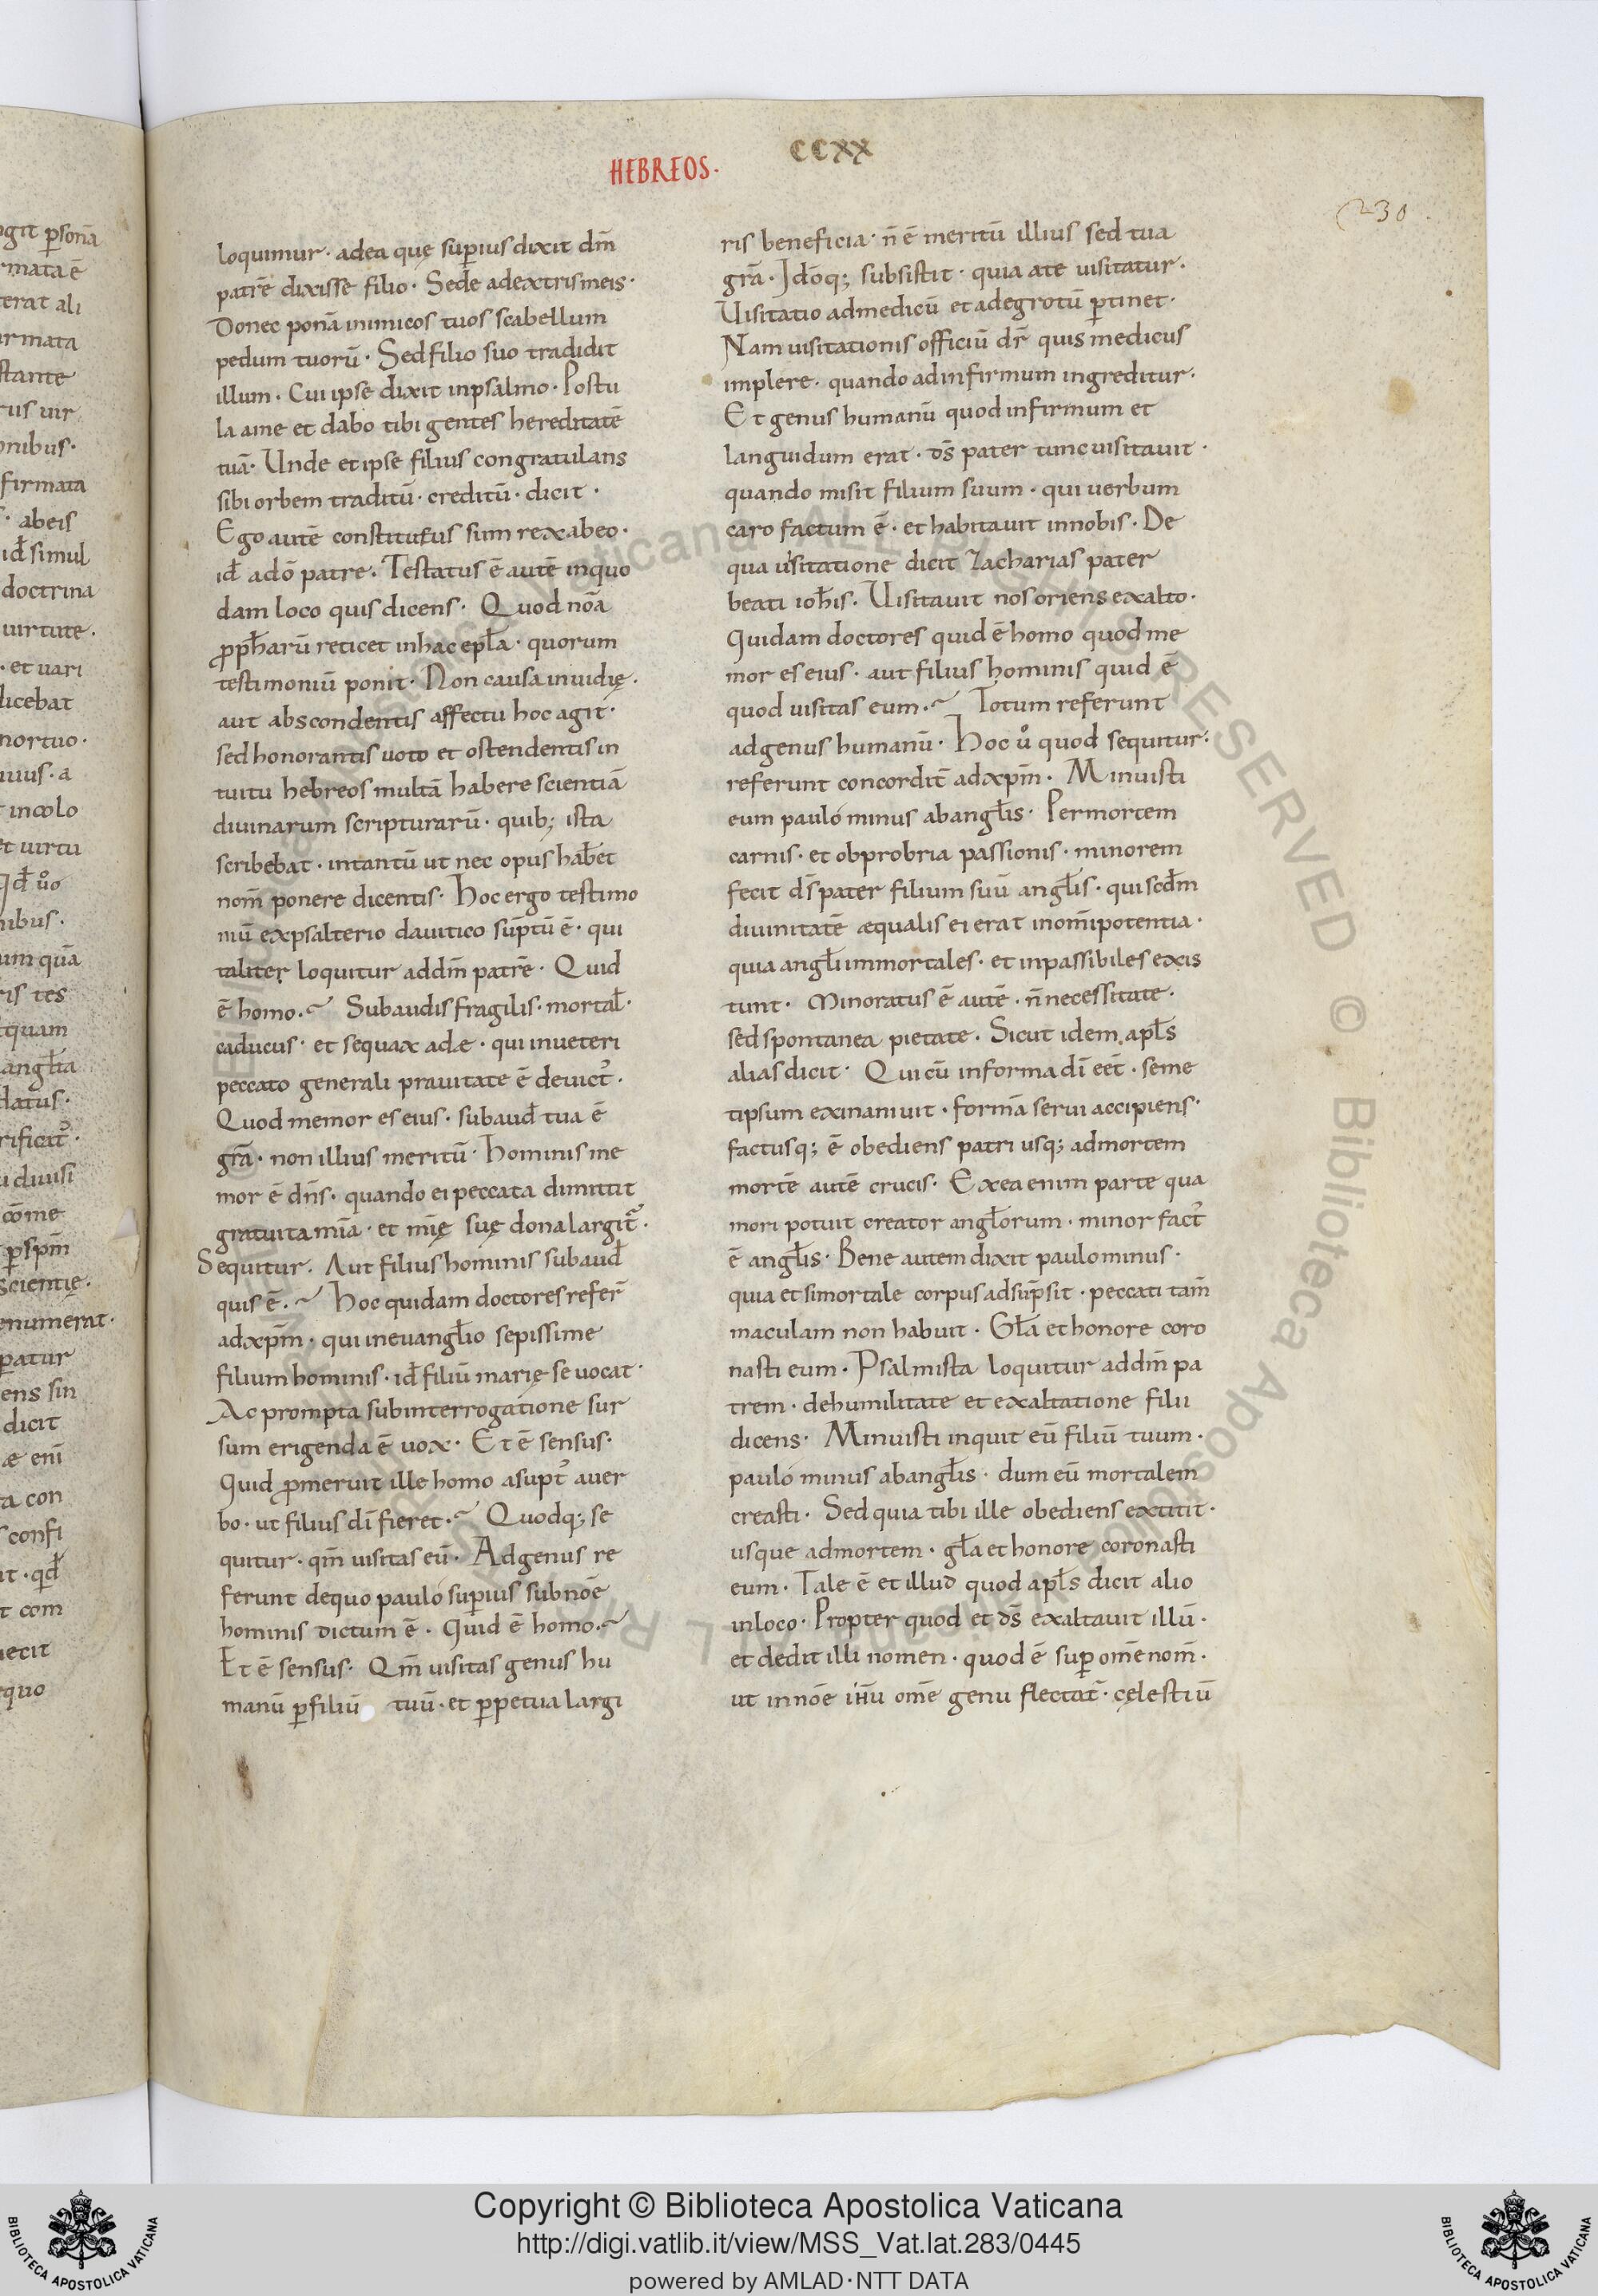 HEBREOS·
CCXX
230
loquimur· adea quę sup̄ius dixit dn̄i
patrē dixisse filio· Sede adextris meis·
Donec ponā inimicos tuos scabellum
pedum tuorū· Sed filio suo tradidit
illum· Cui ipse dixit inpsalmo· Postu
la ame et dabo tibi gentes hereditatē
tuā· Unde et ipse filius congratulans
sibi orbem traditū· creditū· dicit·
Ego autē constitutus sum rex abeo·
id÷ adō patre· Testatus ē autē inquo
dam loco quis dicens· Quod nōa
ꝓph̄arū reticet inhac epł̄a· quorum
testimoniū ponit· Non causa inuidię·
aut abscondentis affectu hoc agit·
sed honorantis uoto et ostendentis in
tuitu hebreos multā habere scientiā
diuinarum scripturarū· quib; ista
scribebat· intantū ut nec opus hab̄et
nom̄ ponere dicentis· Hoc ergo testimo
niū expsalterio dauitico sūptū ē· qui
taliter loquitur addn̄i patrē· Quid
ē homo·~ Subaudis fragilis· mortał·
caducus· et sequax adæ· qui inueteri
peccato generali prauitate ē deuict᷒·
Quod memor es eius· subaud̄ tua ē
gr̄a· non illius meritū· Hominis me
mor ē dn̄s· quando ei peccata dimittit
gratuita mīa· et mīę suę dona largit᷒·
Sequitur· Aut filius hominis subaud̄
quis ē·~ Hoc quidam doctores refer̄
adxp̄m· qui ineuangł̄io sepissime
filium hominis· id̄ filiū marię se uocat·
Ac prompta subinterrogatione sur
sum erigenda ē uox· Et ē sensus·
Quid ꝓmeruit ille homo asupt᷒ auer
bo· ut filius dī fieret·~ Quodq; se
quitur· qm̄ uisitas eū· Ad genus re
ferunt dequo paulo sup̄ius sub nōe
hominis dictum ē· Quid ē homo·~
Et ē sensus· Qm̄ uisitas genus hu
manū ꝑfiliū tuū· et ꝑpetua largi
ris beneficia· n̄ ē meritū illius sed tua
gr̄a· Idoq; subsistit· quia ate uisitatur·
Uisitatio admedicū et adegrotū ꝑtinet·
Nam uisitationis officiū dr̄ quis medicus
implere· quando adinfirmum ingreditur·
Et genus humanū quod infirmum et
languidum erat· ds̄ pater tunc uisitauit·
quando misit filium suum· qui uerbum
caro factum ē· et habitauit innobis· De
qua uisitatione dicit Zacharias pater
beati ioh̄is· Uisitauit nos oriens exalto·
Quidam doctores quid ē homo quod me
mor es eius· aut filius hominis quid ē
quod uisitas eum·~ Totum referunt
adgenus humanū· Hoc uͦ quod sequitur·
referunt concordit̄ adxp̄m· Minuisti
eum paulo minus abangł̄is· Per mortem
carnis· et obprobria passionis· minorem
fecit ds̄ pater filium suū angł̄is· qui scd̄m
diuinitatē æqualis ei erat inom̄ipotentia·
quia angł̄i immortales· et inpassibiles exis
tunt· Minoratus ē autē· n̄ necessitate·
sed spontanea pietate· Sicut idem apł̄s
alias dicit· Qui cū informa dī eēt· seme
tipsum exinaniuit· formā serui accipiens·
factusq; ē obediens patri usq; admortem
mortē autē crucis· Exea enim parte qua
mori potuit creator angł̄orum· minor fact᷒
ē angł̄is· Bene autem dixit paulo minus·
quia et si mortale corpus adsūpsit· peccati tam̄
maculam non habuit· Gł̄a et honore coro
nasti eum· Psalmista loquitur addn̄i pa
trem· dehumilitate et exaltatione filii
dicens· Minuisti inquit eū filiū tuum·
paulo minus abangł̄is· dum eū mortalem
creasti· Sed quia tibi ille obediens extitit·
usque admortem· gł̄a et honore coronasti
eum· Tale ē et illud quod apł̄s dicit alio
inloco· Propter quod et ds̄ exaltauit illū·
et dedit illi nomen· quod ē sup̄ om̄e nom̄·
ut innōe ihū om̄e genu flectat᷒· cęlestiū
Copyright © Biblioteca Apostolica Vaticana
http://digi.vatlib.it/view/MSS_Vat.lat.283/0445
powered by AMLAD·NTT DATA
BIBLIOTECA APOSTOLICA VATICANA
BIBLIOTECA APOSTOLICA VATICANA